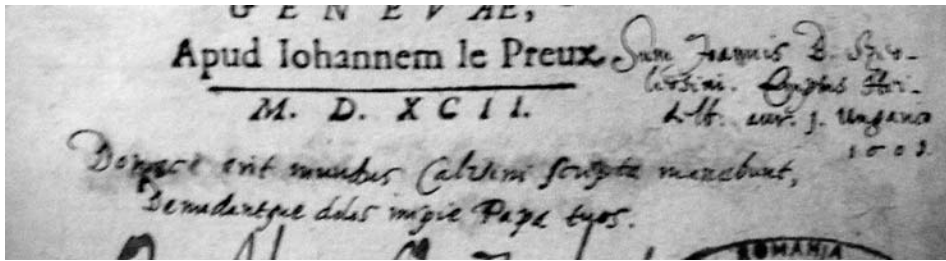 GENEVAE,
Apud Iohannem le Preux
M. D. XCII.
Sum Joannis B. Szir-
Emptus Hei-
delb. aur. j. Ungaro
1603.
Donec erit mundus Calvini scripta manebunt,
Denudantque dolos impie Papa tuos.
ROMANIA